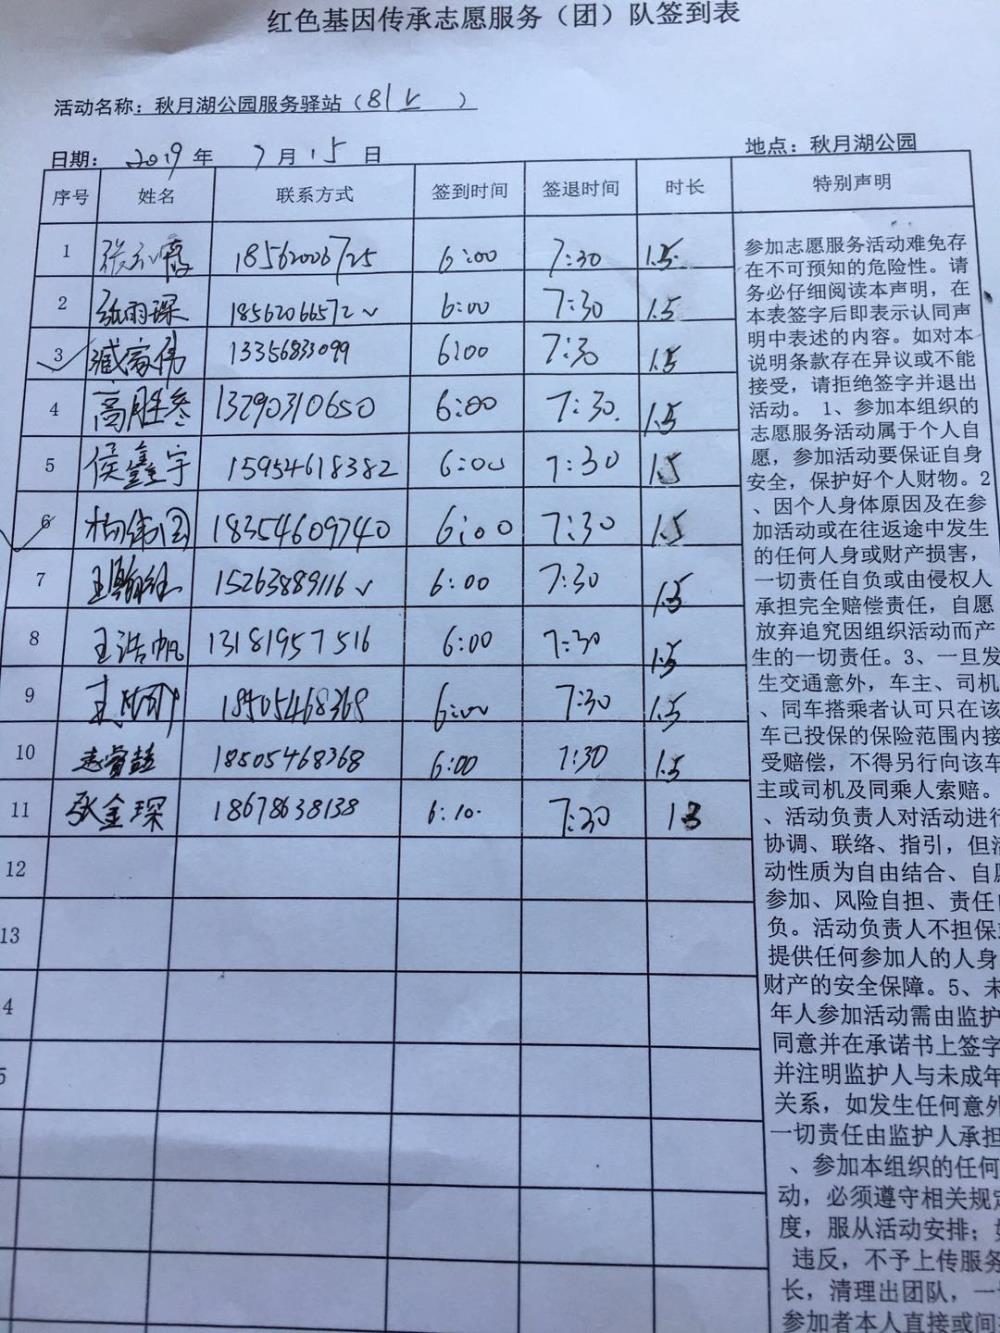 红色基因传承志愿服务（团）队签到表
活动名称：秋月湖公园服务驿站（81上 ）
日期： 2019 年 7 月 15 日
地点：秋月湖公园
序号 姓名 联系方式 签到时间 签退时间 时长 特别声明
1 18562006725 6:00 7:30 1.5
2 张雨琛 18562066572 6:00 7:30 1.5
3 臧家伟 13356833099 6:00 7:30 1.5
4 高胜寒 13290310650 6:00 7:30 1.5
5 侯鑫宇 15954618382 6:00 7:30 1.5
6 杨伟国 18354609740 6:00 7:30 1.5
7 15263889116 6:00 7:30 1.5
8 王浩帆 13181957516 6:00 7:30 1.5
9 18505468368 6:00 7:30 1.5
10 18505468368 6:00 7:30 1.5
11 张金琛 18678638138 6:10 7:30 1.3
12
13
4
5
参加志愿服务活动难免存
在不可预知的危险性。请
务必仔细阅读本声明，在
本表签字后即表示认同声
明中表述的内容。如对本
说明条款存在异议或不能
接受，请拒绝签字并退出
活动。 1、参加本组织的
志愿服务活动属于个人自
愿，参加活动要保证自身
安全，保护好个人财物。2
、因个人身体原因及在参
加活动或在往返途中发生
的任何人身或财产损害，
一切责任自负或由侵权人
承担完全赔偿责任，自愿
放弃追究因组织活动而产
生的一切责任。3、一旦发
生交通意外，车主、司机
、同车搭乘者认可只在该
车已投保的保险范围内接
受赔偿，不得另行向该车
主或司机及同乘人索赔。
、活动负责人对活动进行
协调、联络、指引，但活
动性质为自由结合、自愿
参加、风险自担、责任自
负。活动负责人不担保或
提供任何参加人的人身
财产的安全保障。5、未
年人参加活动需由监护
同意并在承诺书上签字
并注明监护人与未成年
关系，如发生任何意外
一切责任由监护人承担
、参加本组织的任何
动，必须遵守相关规定
度，服从活动安排；如
违反，不予上传服务
长，清理出团队，一
参加者本人直接或间